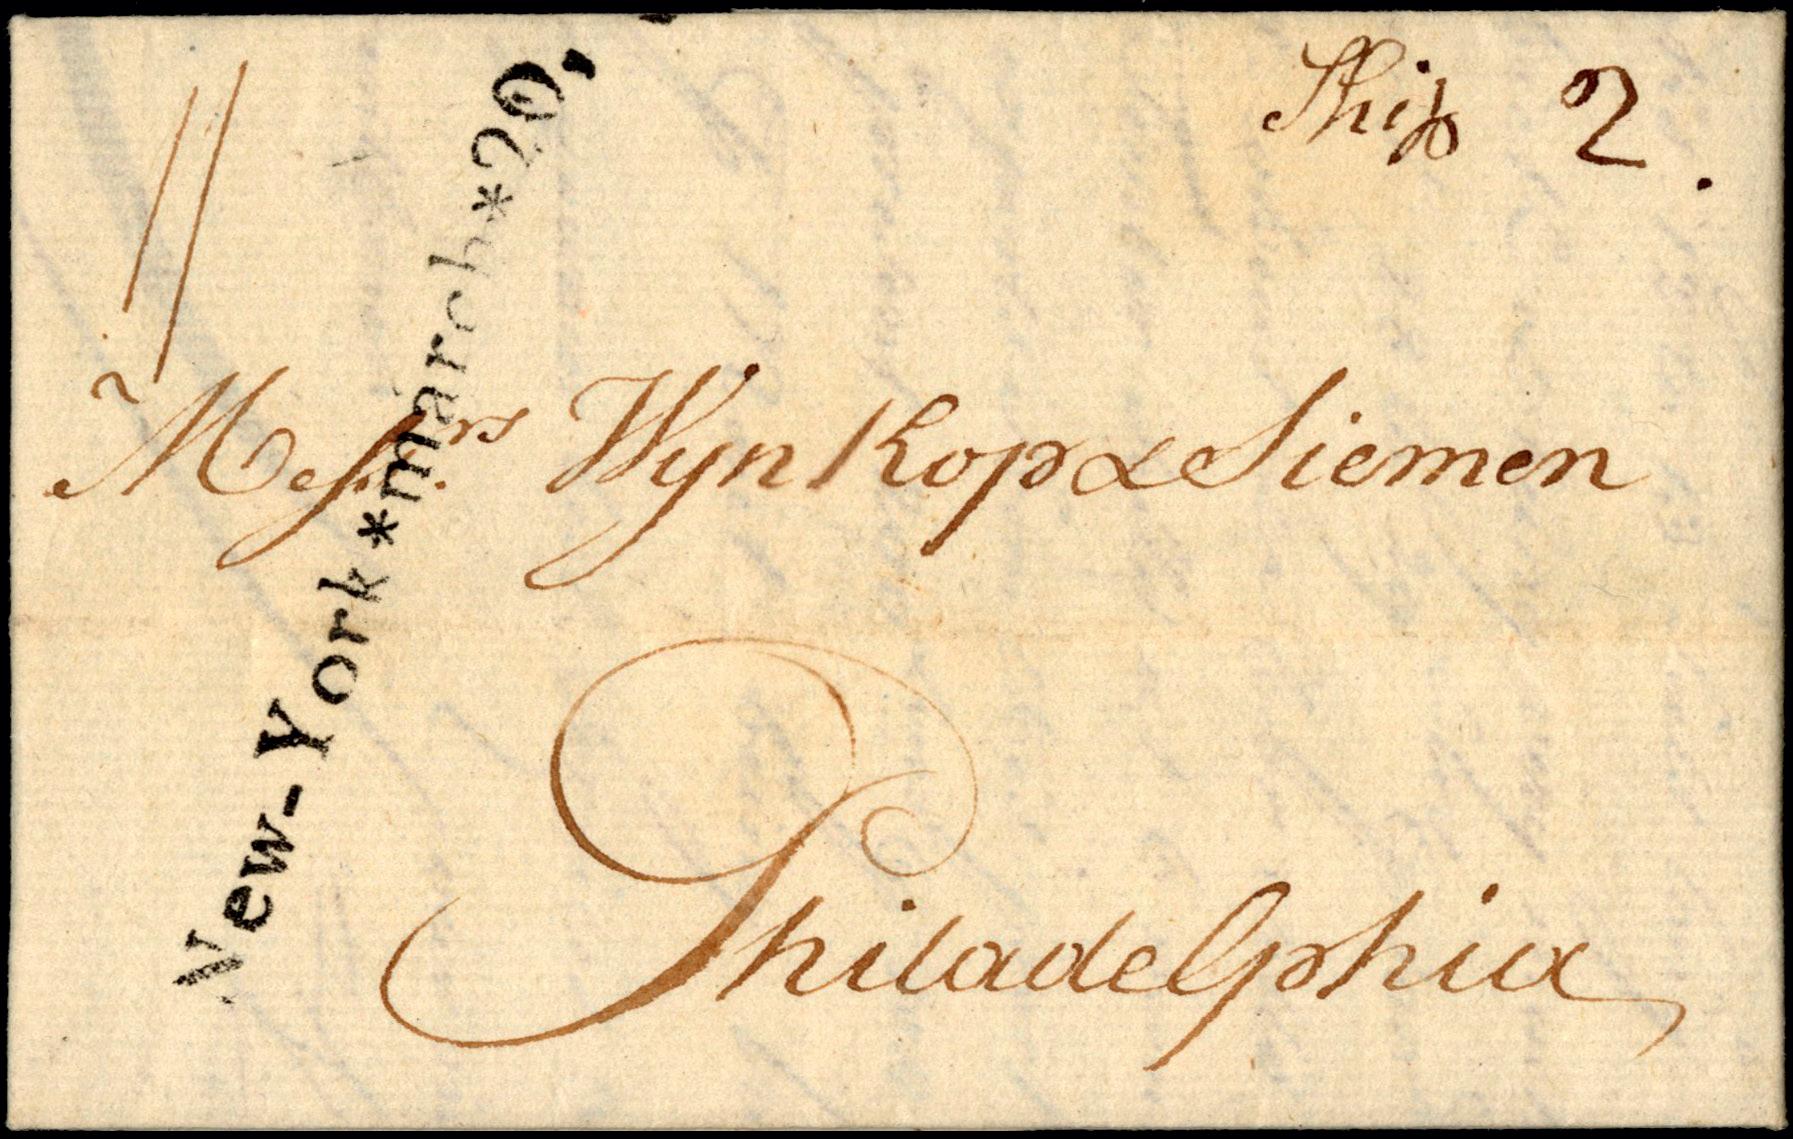 Ship 2.
New-York *march*20,
Messrs. Wynkop & Siemen
Philadelphia